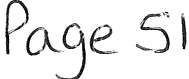 Page 51